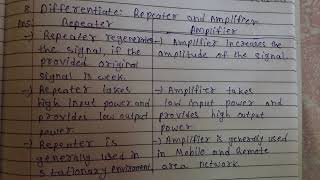 8. Differentiate: Repeater and Amplifier
Ans: Repeater Amplifier
→ Repeater regenerates → Amplifier increases the
the signal, if the amplitude of the signal.
provided original
signal is weak.
→ Repeater takes → Amplifier takes
high input power and low input power and
provides low output provides high output
power. power
→ Repeater is → Amplifier is generally used
generally used in in Mobile and Remote
stationary environment, area network.